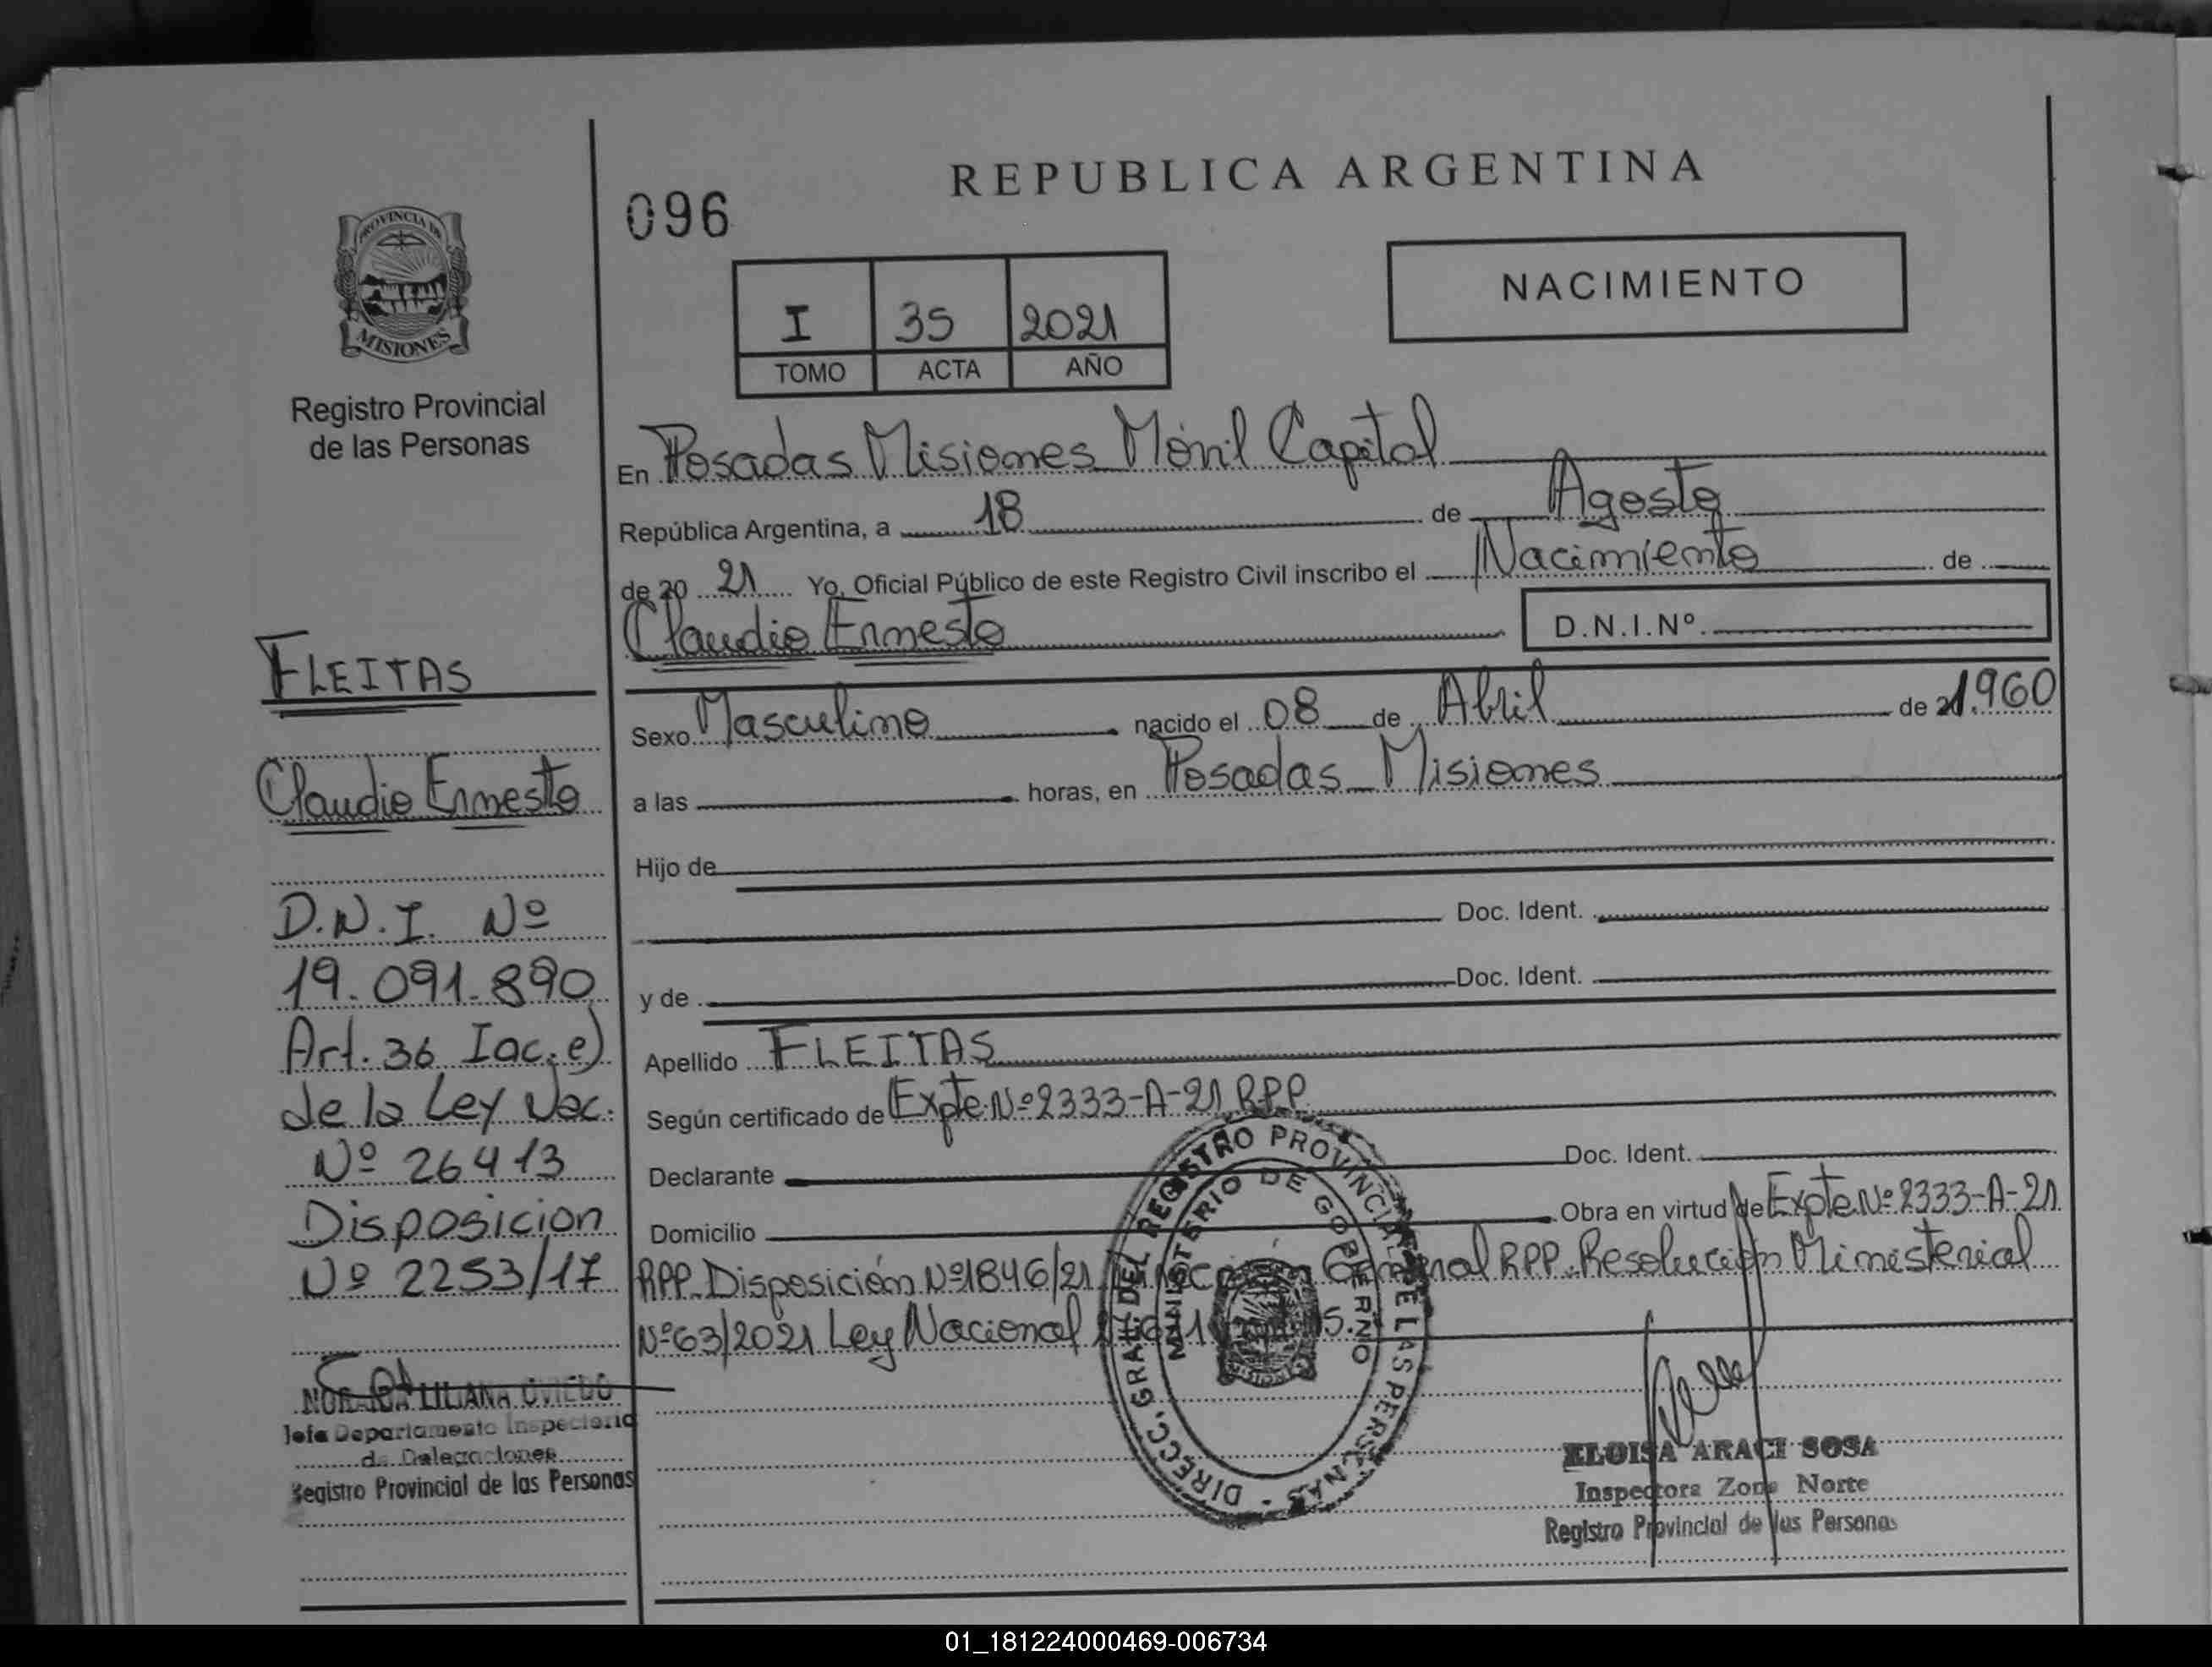 REPUBLICA ARGENTINA
096
NACIMIENTO
I 35 2021
TOMO ACTA AÑO
PROVINCIA DE
MISIONES
Registro Provincial
de las Personas
En Posadas Misiones Móvil Capital
República Argentina, a 18 de Agosto
de 20 21 Yo, Oficial Público de este Registro Civil inscribo el Nacimiento de
Claudio Ernesto D.N.I.Nº.
Sexo Masculino nacido el 08 de Abril de 1.960
a las horas, en Posadas Misiones
Hijo de
Doc. Ident.
y de Doc. Ident.
Apellido FLEITAS
Según certificado de Expte.Nº2333-A-21 RPP
Declarante Doc. Ident.
Domicilio Obra en virtud de Expte.Nº2333-A-21
RPP. Disposición Nº1846/21 General RPP. Resolución Ministerial
Nº63/2021 Ley Nacional
FLEITAS
Claudio Ernesto
D.N.I. Nº
19.091.890
Art. 36 Inc. e)
de la Ley Nac.
Nº 26413
Disposicion
Nº 2253/17
LILIANA OVIEDO
Jefa Departamento Inspectoria
de Delegaciones
Registro Provincial de las Personas
DIRECC. GRAL. DEL REGISTRO PROVINCIAL DE LAS PERSONAS
MINISTERIO DE GOBIERNO
ELOISA ARACI SOSA
Inspectora Zona Norte
Registro Provincial de las Personas
01_181224000469-006734